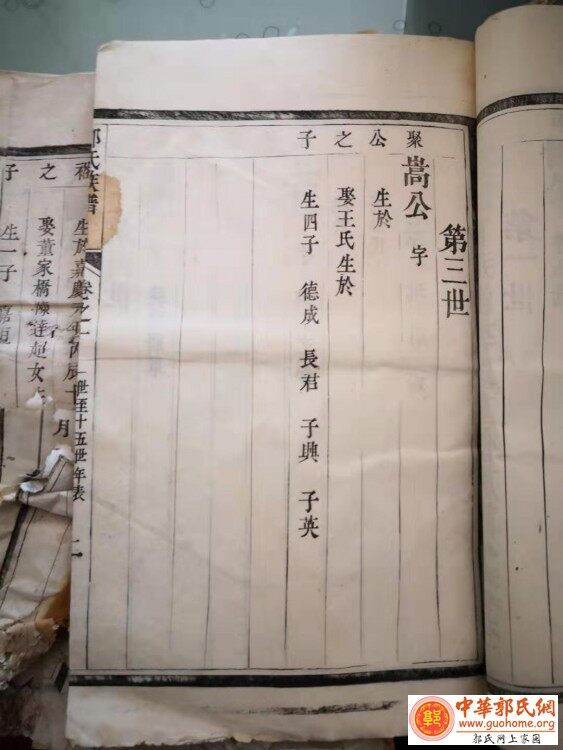 第三世
聚公之子
嵩公 字
生於
娶王氏生於
生四子 德成 長君 子興 子英
郭氏族譜
卷之一
一世至十五世年表
二
之子
生於嘉慶
娶董家橋
女
生一子
中華郭氏網
www.guohome.org
郭氏网上家园